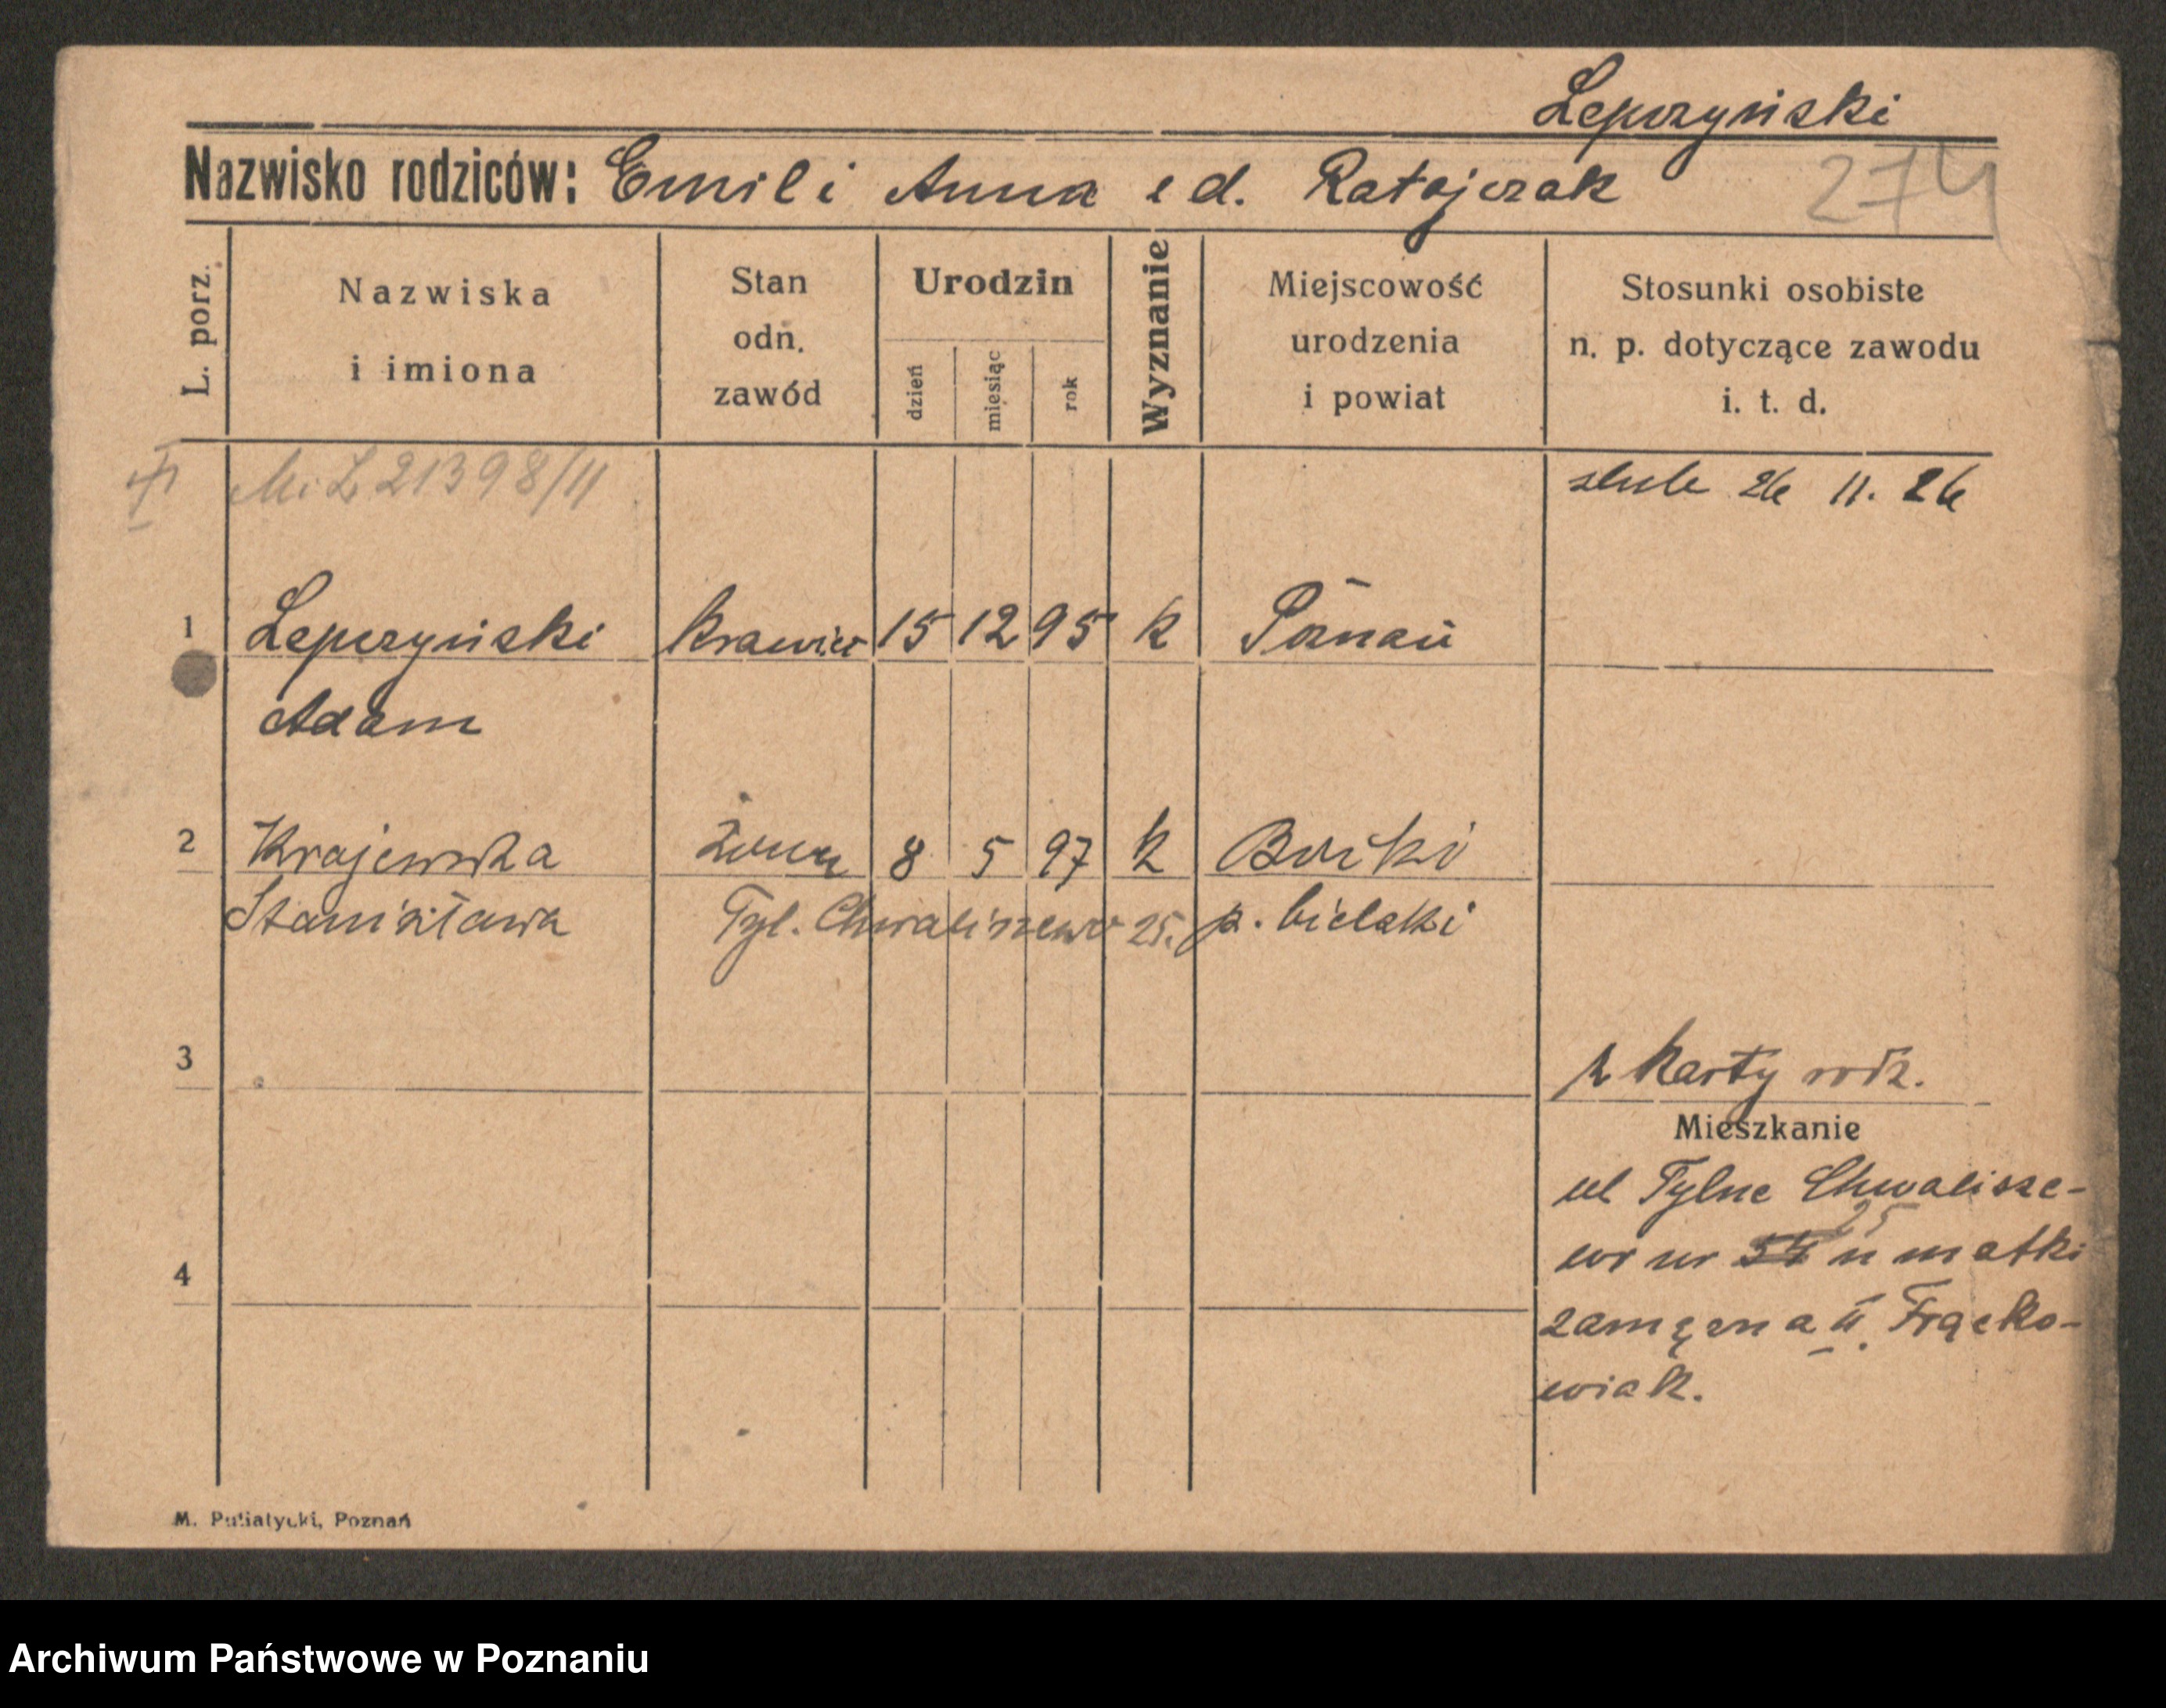 Lepczyński
Nazwisko rodziców: Emil i Anna e d. Ratajczak 274
L. porz.
Nazwiska
i imiona
Stan
odn.
zawód
Urodzin
dzień
miesiąc
rok
Wyznanie
Miejscowość
urodzenia
i powiat
Stosunki osobiste
n. p. dotyczące zawodu
i. t. d.
21398/11
ślub 26 11. 26
1 Lepczyński krawiec 15 12 95 k Poznań
Adam
2 Krajewska żona 8 5 97 k Borki
Stanisława Tyl. Chwaliszewo 25. p. bielski
3
z karty rodz.
Mieszkanie
ul Tylne Chwalisze-
25
wo nr 54 u matki
4
zamężna II. Frącko-
wiak.
M. Putiatycki, Poznań
Archiwum Państwowe w Poznaniu